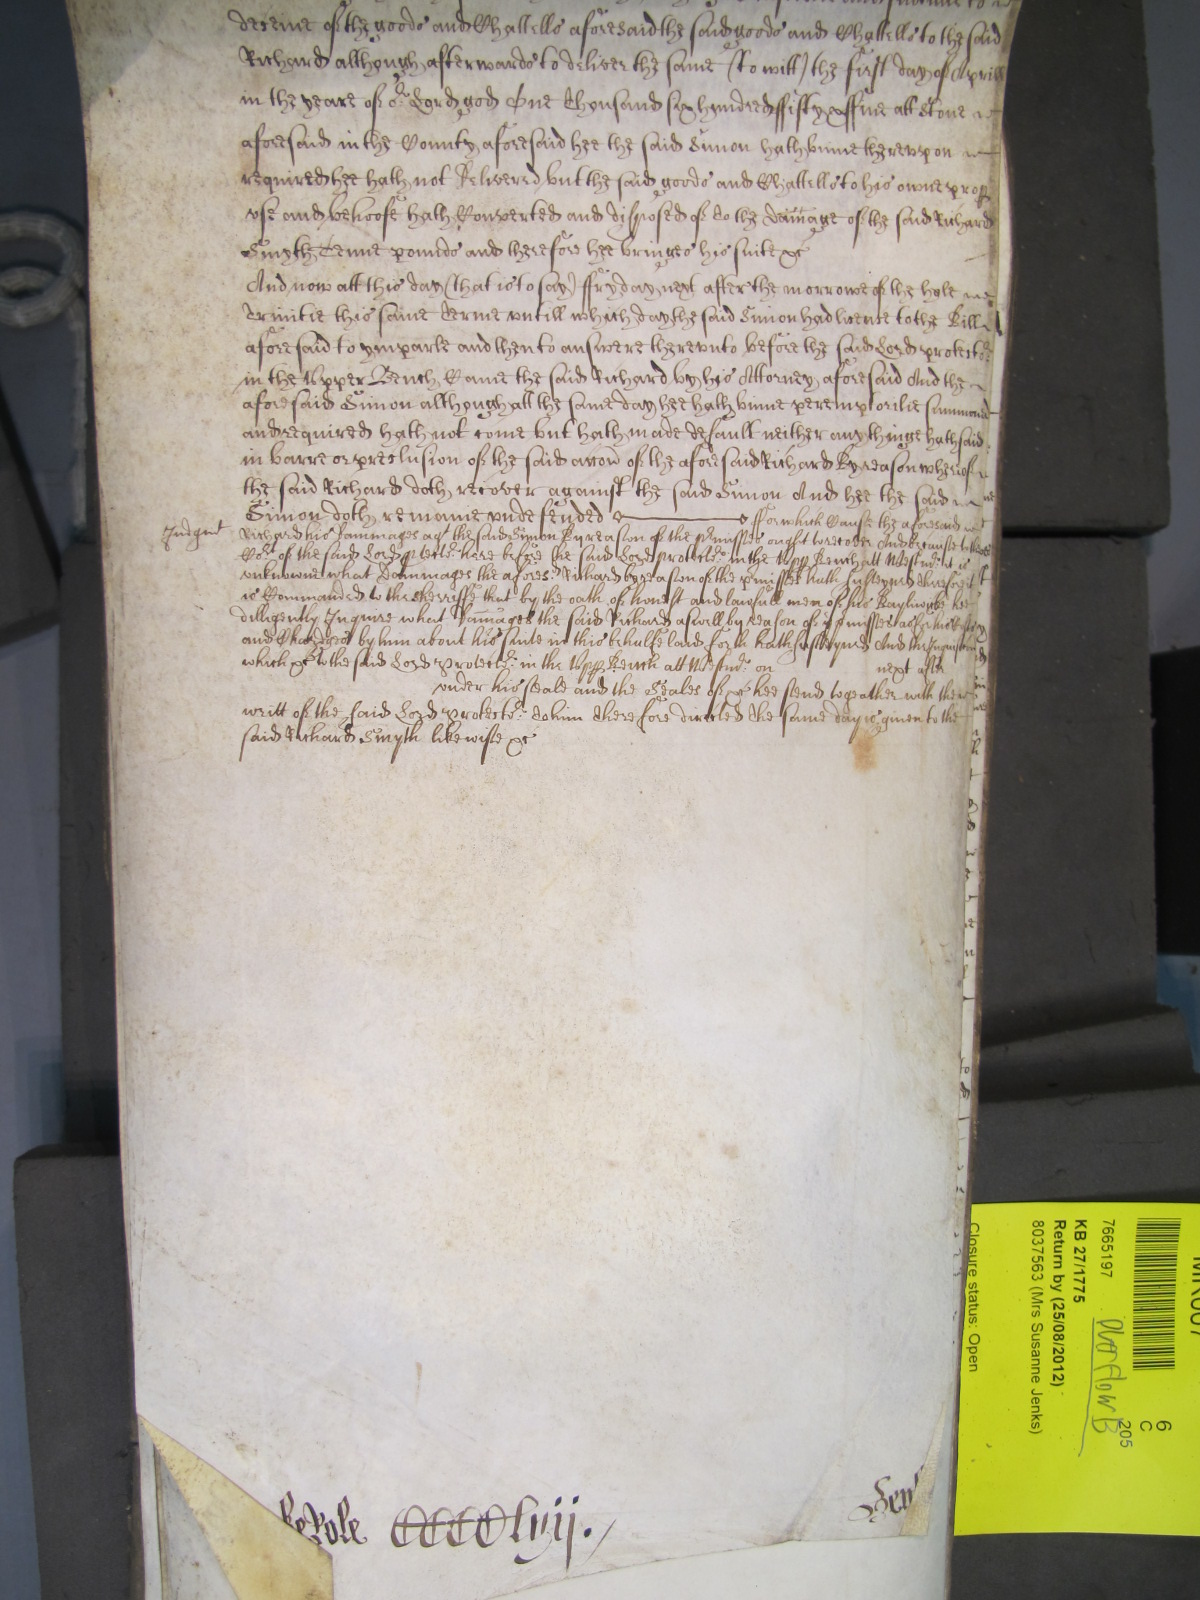 deceive of the goods and Chattells aforesaid the said goods and Chattells to the said
Richard although afterwards to deliver the same (to witt) the first day of Aprill
in the yeare of or Lord god One thousand six hundred ffifty ffive att Stone
aforesaid in the County aforesaid hee the said Simon hath binne therevpon
required hee hath not delivered but the said goods and Chattells to his owne prop
vse and behoofe hath Converted and disposed of to the damage of the said Richard
Smyth Tenne pounds and therefore hee bringes his suite &c
And now att this day (that is to say) ffryday next after the morrowe of the holie
Trinitie this same terme vntill which day the said Simon had licence to the Bill
aforesaid to ymparle and then to answere therevnto before the said Lord protector
in the Vpper Bench Came the said Richard by his Attorney aforesaid And the
aforesaid Simon although att the same day hee hath binne peremptorilie summoned
and required hath not come but hath made default neither any thinge hath said
in barre or preclusion of the said accon of the aforesaid Richard By reason whereof
the said Richard doth recover against the said Simon And hee the said
Simon doth remaine vndefended ffor which Cause the aforesaid
Judgmt
Richard his dammages agt the said Simon By reason of the pmisses ought to recover And because
Cort of the said Lord ptector here before the said Lord protector in the Vpp Bench att Westmr it is
vnknowne what dammages the aforesd Richard by reason of the pmisses hath susteyned therefore it
is Commanded to the sherriffe that by the oath of honest and lawfull men of his Baylywicke hee
dilligently Inquire what damages the said Richard aswell by reason of ye pmisses as for his Costs
and Chardges by him about his suite in this behalfe laid forth hath susteyned And the Inquisicon
which &c to the said Lord protector in the Vpp Bench att Westmr on next after
vnder his seale and the Seales of &c hee send togeather with the
writt of the said Lord protector to him therefore directed the same day is given to the
said Richard Smyth likewise &c
Role CCCClvij.
MR007
7665197
KB 27/1775
Return by (25/08/2012)
8037563 (Mrs Susanne Jenks)
Closure status: Open
Overflow B
205
6
C